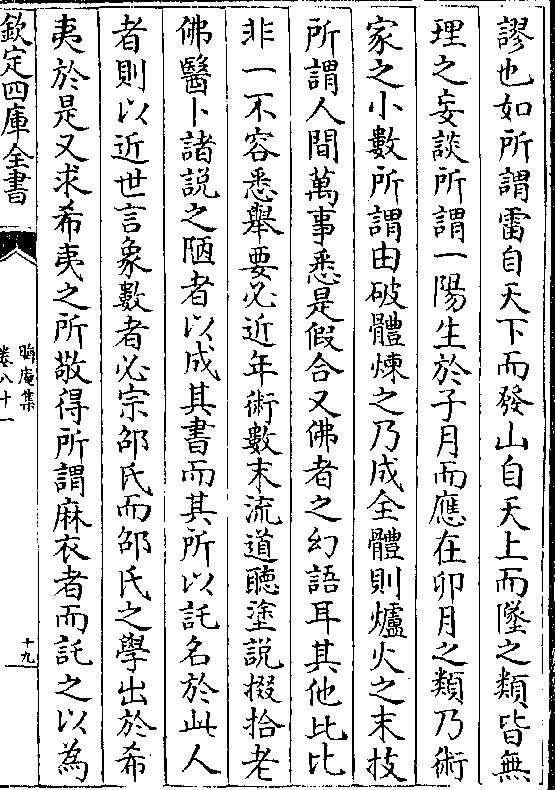 謬也如所謂雷自天下而發山自天上而墜之類皆無
理之妄談所謂一陽生於子月而應在卯月之類乃術
家之小數所謂由破體煉之乃成全體則爐火之末技
所謂人間萬事悉是假合又佛者之幻語耳其他比比
非一不容悉舉要必近年術數末流道聽塗說掇拾老
佛醫卜諸說之陋者以成其書而其所以託名於此人
者則以近世言象數者必宗邵氏而邵氏之學出於希
夷於是又求希夷之所敬得所謂麻衣者而託之以為
欽定四庫全書
晦庵集
卷八十一
十九